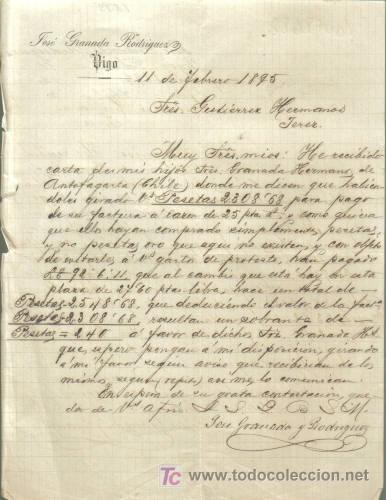 José Granada Rodriguez
Vigo
11 de febrero 1895
Sres. Gutiérrez Hermanos
Jerez.
Muy Sres. mios: He recibido
carta de mis hijos Sres. Granada Hermanos, de
Antofagasta (Chile) donde me dicen que habien
doles girado Vs. Pesetas 2308'68 para pago
de su factura á razon de 25 ptas £, y como quiera
que ellos hayan comprado simplemente pesetas,
y no pesetas oro que aqui no existen, y con objeto
de evitarles á Vs. gastos de protesto, han pagado
£ 92-6-11, que al cambio que está hoy en esta
plaza de 27'60 ptas. libra, hace un total de
Pesetas 2548'68, que deduciendo el valor de la fact.
Pesetas 2308'68, resultan un sobrante de
Pesetas = 240 á favor de dichos Sres. Granada Hos.
que espero pongan á mi disposicion, girando
á mi favor segun aviso que recibirian de los
mismos, segun, repito, me lo comunican.
En espera de su grata contestacion, que
do de Vs. Afmo. S. S. Q. B. S. M.
José Granada y Rodriguez
TC
todocoleccion
www.todocoleccion.net